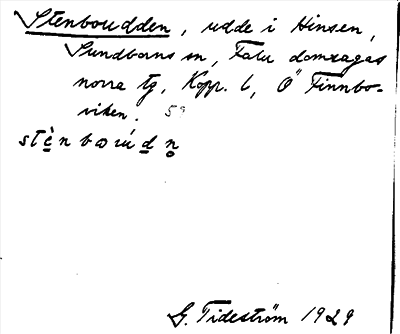 Stenboudden, udde i Hinsen,
Sundborns sn, Falu domsagas
norra tg, Kopp. l, Ö" Finnbo-
viken. 59
stènbωúdn̥
G. Tideström 1929